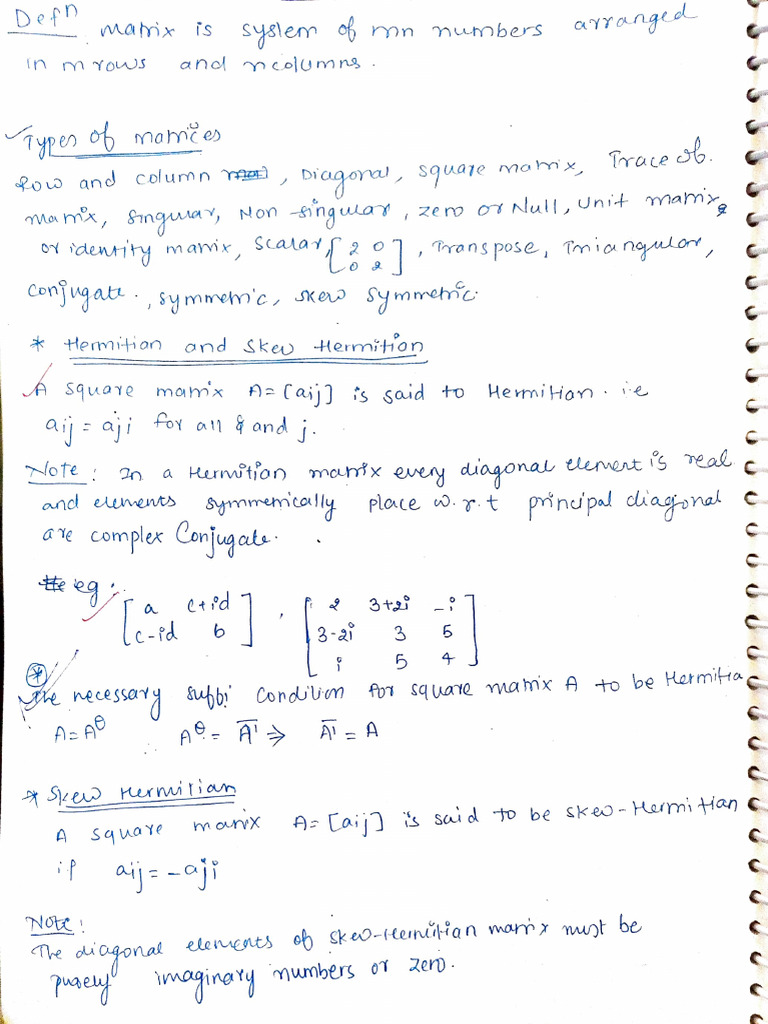 Defn matrix is system of mn numbers arranged
in m rows and n columns.
Types of matrices
Row and column, Diagonal, square matrix, Trace of.
matrix, singular, Non-singular, zero or Null, Unit matrix
or identity matrix, Scalar, [2 0 0 2], Transpose, Triangular,
conjugate., symmetric, skew symmetric.
* Hermitian and Skew Hermition
A square matrix A=[aij] is said to Hermitian. i.e
aij = aji for all i and j.
Note: In a Hermitian matrix every diagonal element is real
and elements symmetrically place w.r.t principal diagonal
are complex Conjugate.
eg:
[a c+id c-id b], [2 3+2i -i 3-2i 3 5 i 5 4]
* The necessary suffi condition for square matrix A to be Hermitia
A=Aθ ∴ Aθ = A̅' ⇒ A̅' = A
* Skew Hermitian
A square matrix A=[aij] is said to be skew-Hermitian
if aij = -aji
Note:
The diagonal elements of skew-Hermitian matrix must be
purely imaginary numbers or zero.